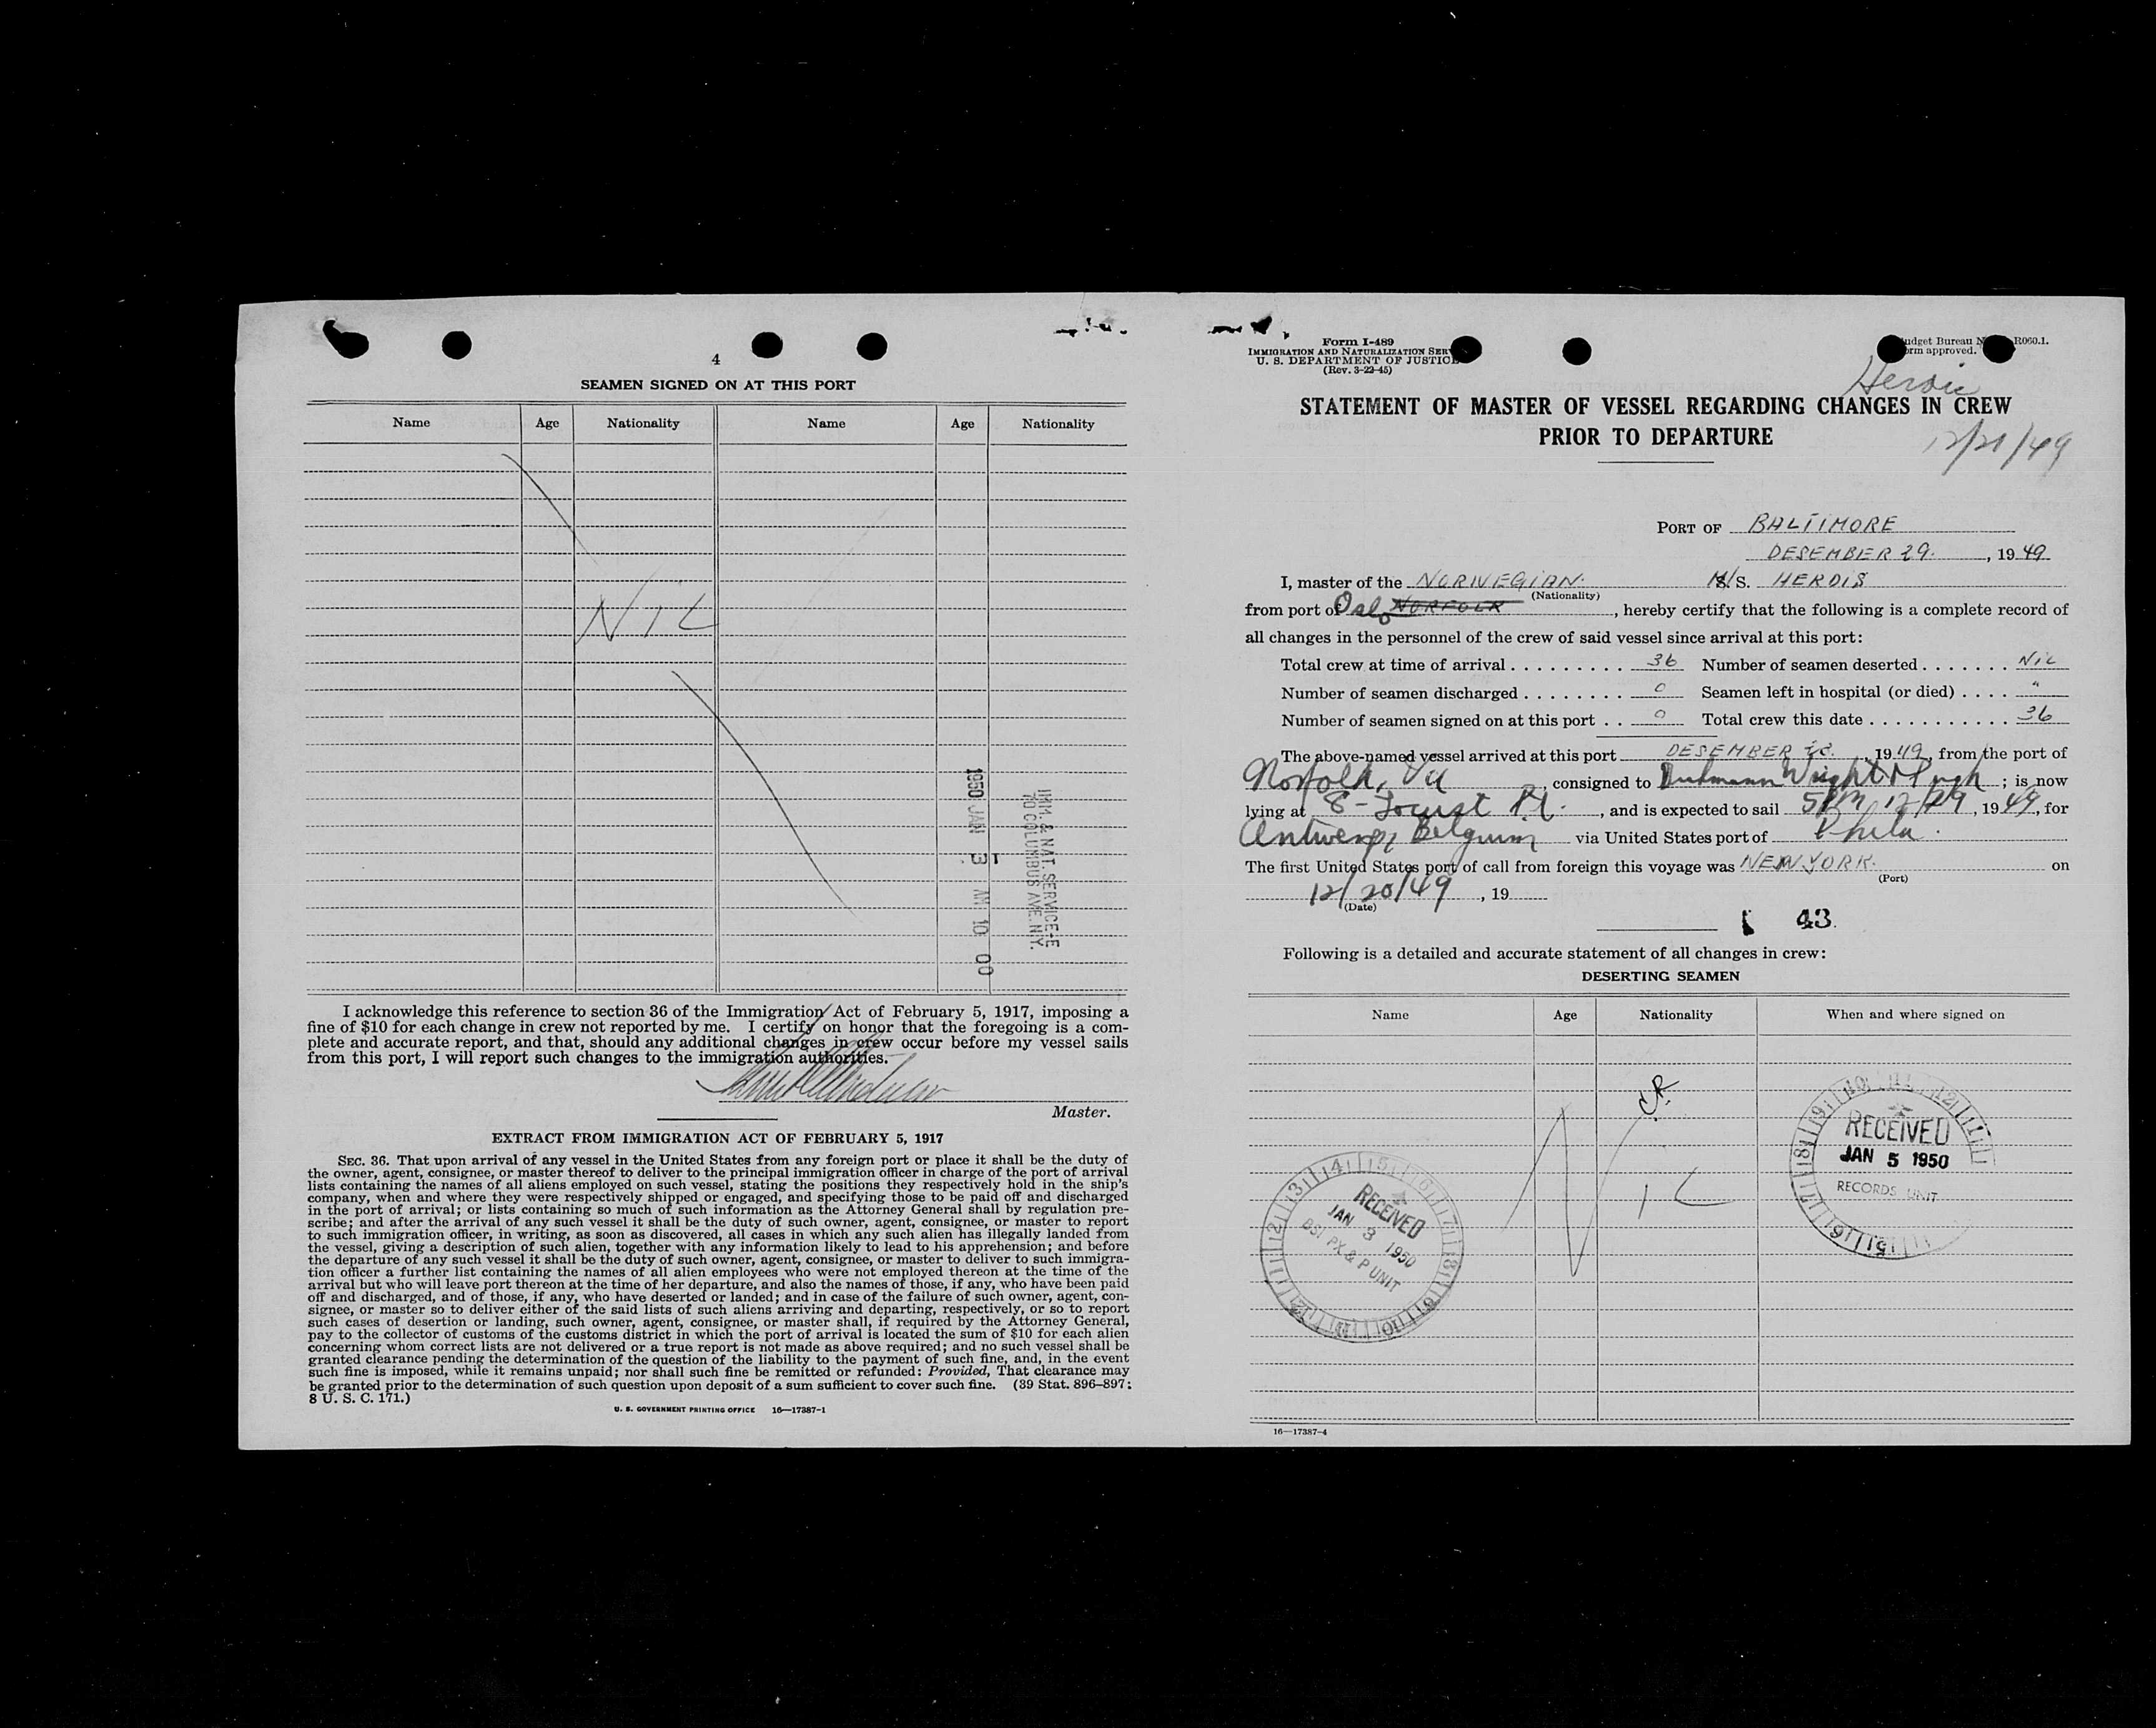 4
SEAMEN SIGNED ON AT THIS PORT
Name Age Nationality Name Age Nationality
NIL
1950 JAN 3 AM 10 00
IMM. & NAT. SERVICE-E
70 COLUMBUS AVE. N.Y.
I acknowledge this reference to section 36 of the Immigration Act of February 5, 1917, imposing a
fine of $10 for each change in crew not reported by me. I certify on honor that the foregoing is a com-
plete and accurate report, and that, should any additional changes in crew occur before my vessel sails
from this port, I will report such changes to the immigration authorities.
Master.
EXTRACT FROM IMMIGRATION ACT OF FEBRUARY 5, 1917
SEC. 36. That upon arrival of any vessel in the United States from any foreign port or place it shall be the duty of
the owner, agent, consignee, or master thereof to deliver to the principal immigration officer in charge of the port of arrival
lists containing the names of all aliens employed on such vessel, stating the positions they respectively hold in the ship's
company, when and where they were respectively shipped or engaged, and specifying those to be paid off and discharged
in the port of arrival; or lists containing so much of such information as the Attorney General shall by regulation pre-
scribe; and after the arrival of any such vessel it shall be the duty of such owner, agent, consignee, or master to report
to such immigration officer, in writing, as soon as discovered, all cases in which any such alien has illegally landed from
the vessel, giving a description of such alien, together with any information likely to lead to his apprehension; and before
the departure of any such vessel it shall be the duty of such owner, agent, consignee, or master to deliver to such immigra-
tion officer a further list containing the names of all alien employees who were not employed thereon at the time of the
arrival but who will leave port thereon at the time of her departure, and also the names of those, if any, who have been paid
off and discharged, and of those, if any, who have deserted or landed; and in case of the failure of such owner, agent, con-
signee, or master so to deliver either of the said lists of such aliens arriving and departing, respectively, or so to report
such cases of desertion or landing, such owner, agent, consignee, or master shall, if required by the Attorney General,
pay to the collector of customs of the customs district in which the port of arrival is located the sum of $10 for each alien
concerning whom correct lists are not delivered or a true report is not made as above required; and no such vessel shall be
granted clearance pending the determination of the question of the liability to the payment of such fine, and, in the event
such fine is imposed, while it remains unpaid; nor shall such fine be remitted or refunded: Provided, That clearance may
be granted prior to the determination of such question upon deposit of a sum sufficient to cover such fine. (39 Stat. 896–897;
8 U. S. C. 171.)
U. S. GOVERNMENT PRINTING OFFICE 16—17387-1
Form I-489
IMMIGRATION AND NATURALIZATION SER
U. S. DEPARTMENT OF JUSTICE
(Rev. 3-22-45)
udget Bureau N R060.1.
orm approved.
STATEMENT OF MASTER OF VESSEL REGARDING CHANGES IN CREW
PRIOR TO DEPARTURE
12/21/49
PORT OF BALTIMORE
DESEMBER 29. , 19 49
I, master of the NORWEGIAN. M/S. HERDIS
(Nationality)
from port of Oslo NORFOLK , hereby certify that the following is a complete record of
all changes in the personnel of the crew of said vessel since arrival at this port:
Total crew at time of arrival . . . . . . . . . 36 Number of seamen deserted . . . . . . . NIL
Number of seamen discharged . . . . . . . . 0 Seamen left in hospital (or died) . . . . "
Number of seamen signed on at this port . . 0 Total crew this date . . . . . . . . . . . 36
The above-named vessel arrived at this port DESEMBER 28. , 19 49, from the port of
Norfolk, Va , consigned to Wright & Pugh ; is now
lying at 8-Locust Pt. , and is expected to sail 5PM 12/29 , 19 49, for
Antwerp, Belgium via United States port of Phila.
The first United States port of call from foreign this voyage was NEW YORK. on
(Port)
12/20/49 , 19
(Date)
43.
Following is a detailed and accurate statement of all changes in crew:
DESERTING SEAMEN
Name Age Nationality When and where signed on
NIL
RECEIVED
JAN 5 1950
RECORDS UNIT
RECEIVED
JAN 3 1950
DSI PX & P UNIT
16—17387-4